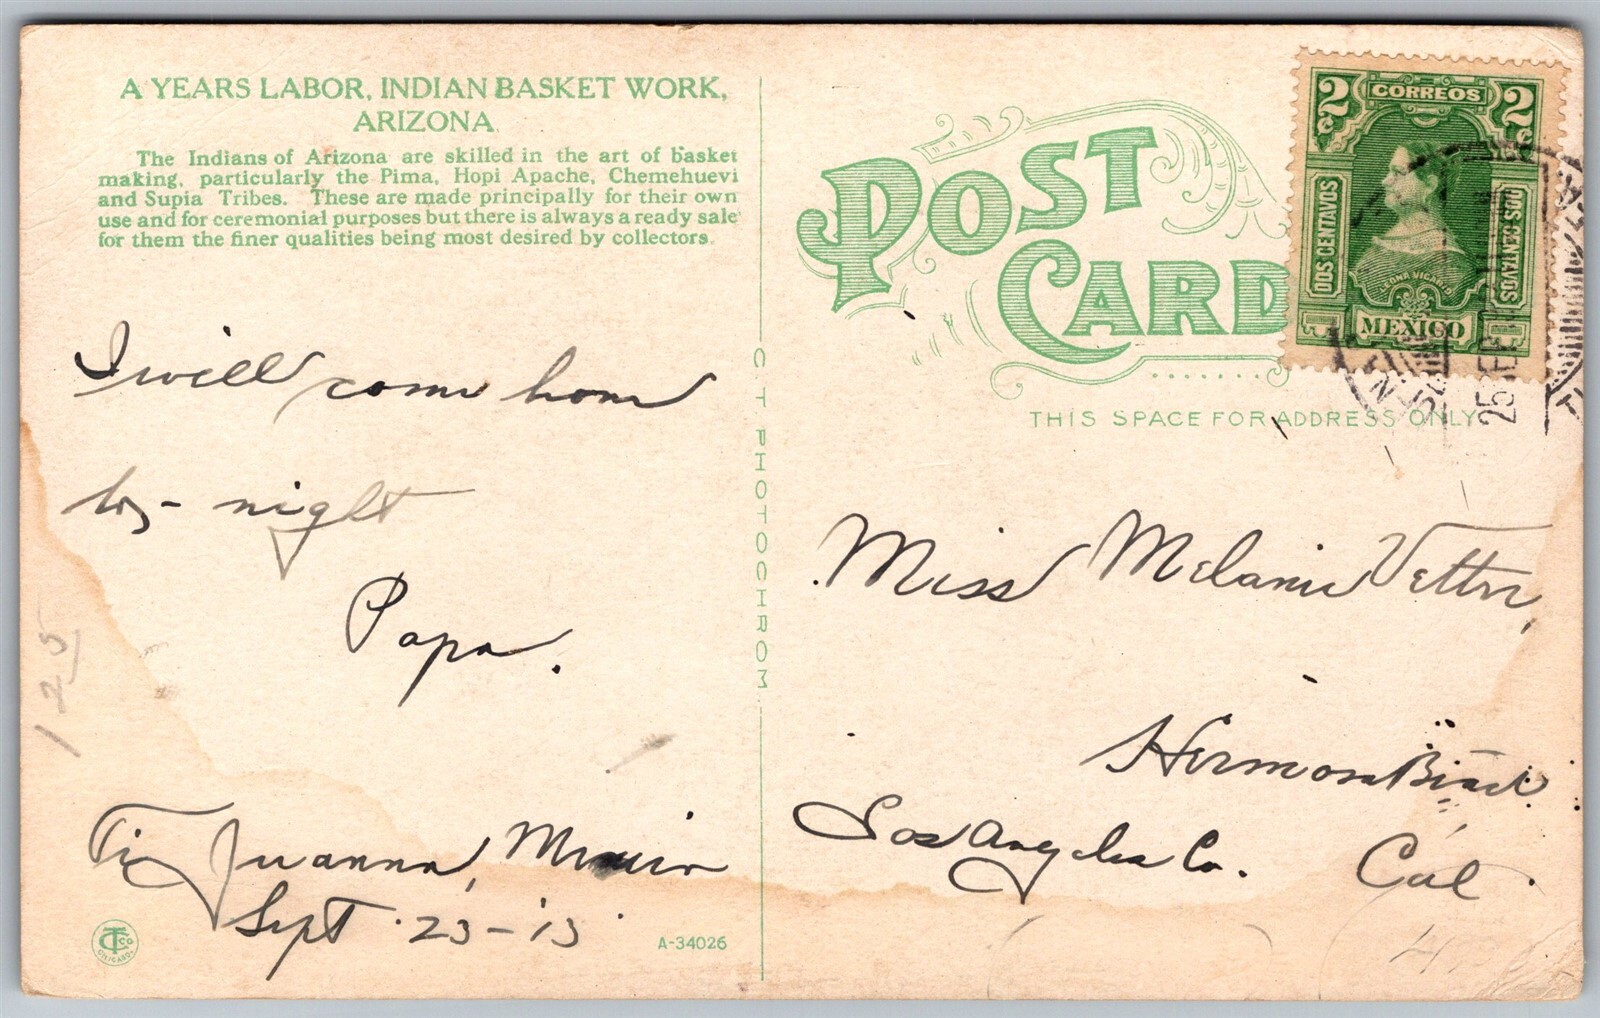 A YEARS LABOR, INDIAN BASKET WORK,
ARIZONA.
The Indians of Arizona are skilled in the art of basket
making, particularly the Pima, Hopi Apache, Chemehuevi
and Supia Tribes. These are made principally for their own
use and for ceremonial purposes but there is always a ready sale
for them the finer qualities being most desired by collectors.
I will come home
to-night
Papa.
Tia Juanna, Mexico
Sept. 23-13
125
CT Co
CHICAGO.
A-34026
C T PHOTOCHROM
POST
CARD
THIS SPACE FOR ADDRESS ONLY
2c CORREOS 2c
DOS CENTAVOS
DOS CENTAVOS
LEONA VICARIO
MEXICO
25
Miss Melanie Vetter,
Hermosa Beach
Los Angeles Co.
Cal.